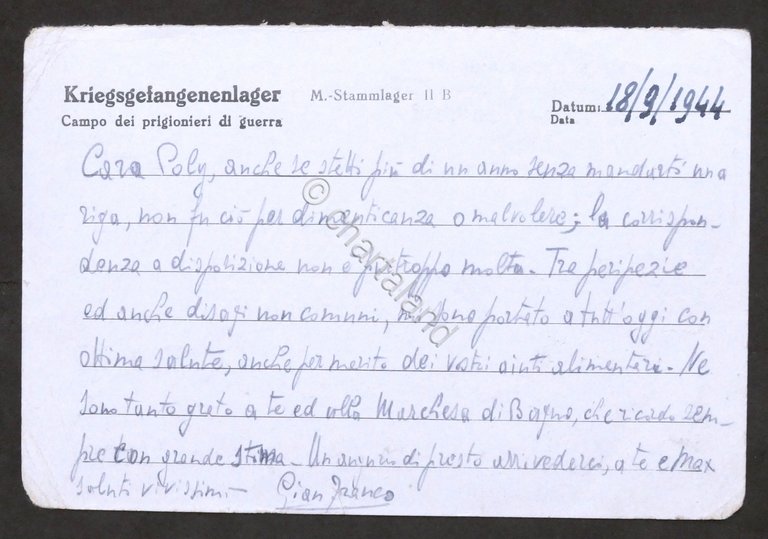 Kriegsgefangenenlager M.-Stammlager II B
Campo dei prigionieri di guerra
Datum: 18/9/1944
Data
Cara Poly, anche se stetti più di un anno senza mandarti una
riga, non fu ciò per dimenticanza o malvolere; la corrispon-
denza a disposizione non è purtroppo molta. Tra peripezie
ed anche disagi non comuni, mi sono portato a tutt'oggi con
ottima salute, anche per merito dei vostri aiuti alimentari. Ve
sono tanto grato a te ed alla Marchesa di Bagno, che ricordo sem-
pre con grande stima. Un augurio di presto arrivederci, a te e Max
saluti vivissimi
Gian Franco
© chartaland